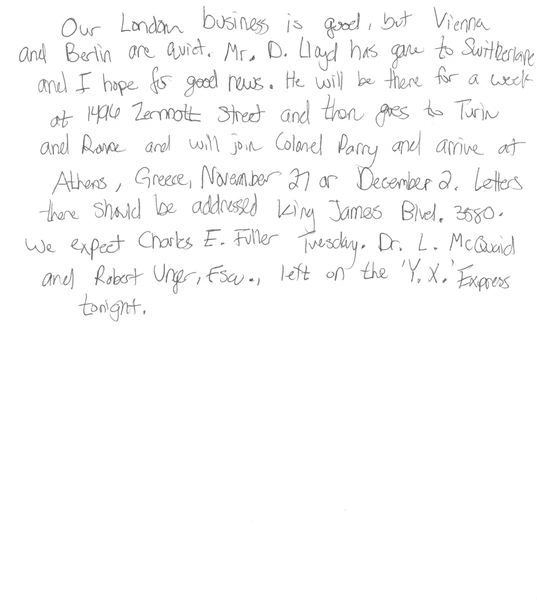 Our London business is good, but Vienna
and Berlin are quiet. Mr. D. Lloyd has gone to Switzerland
and I hope for good news. He will be there for a week
at 1496 Zermott Street and then goes to Turin
and Rome and will join Colonel Parry and arrive at
Athens, Greece, November 27 or December 2. Letters
there should be addressed King James Blvd. 3580.
We expect Charles E. Fuller Tuesday. Dr. L. McQuaid
and Robert Unger, Esq., left on the 'Y.X.' Express
tonight.